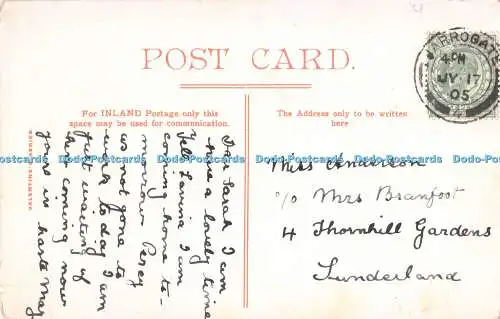 POST CARD.
HARROGATE
4 PM
JY 17
05
For INLAND Postage only this
space may be used for communication.
The Address only to be written
here
Dear Sarah I am
have a lovely time
Tell Lavinia I am
coming home to-
morrow Percy
as not gone to
work to day I am
just waiting of
he coming now
yours in haste May
Miss Anderson
c/o Mrs Branfoot
4 Thornhill Gardens
Sunderland
Dodo-Postcards Dodo-Postcards Dodo-Postcards Dodo-Postcards Dodo-Postcards Dodo-Postcards